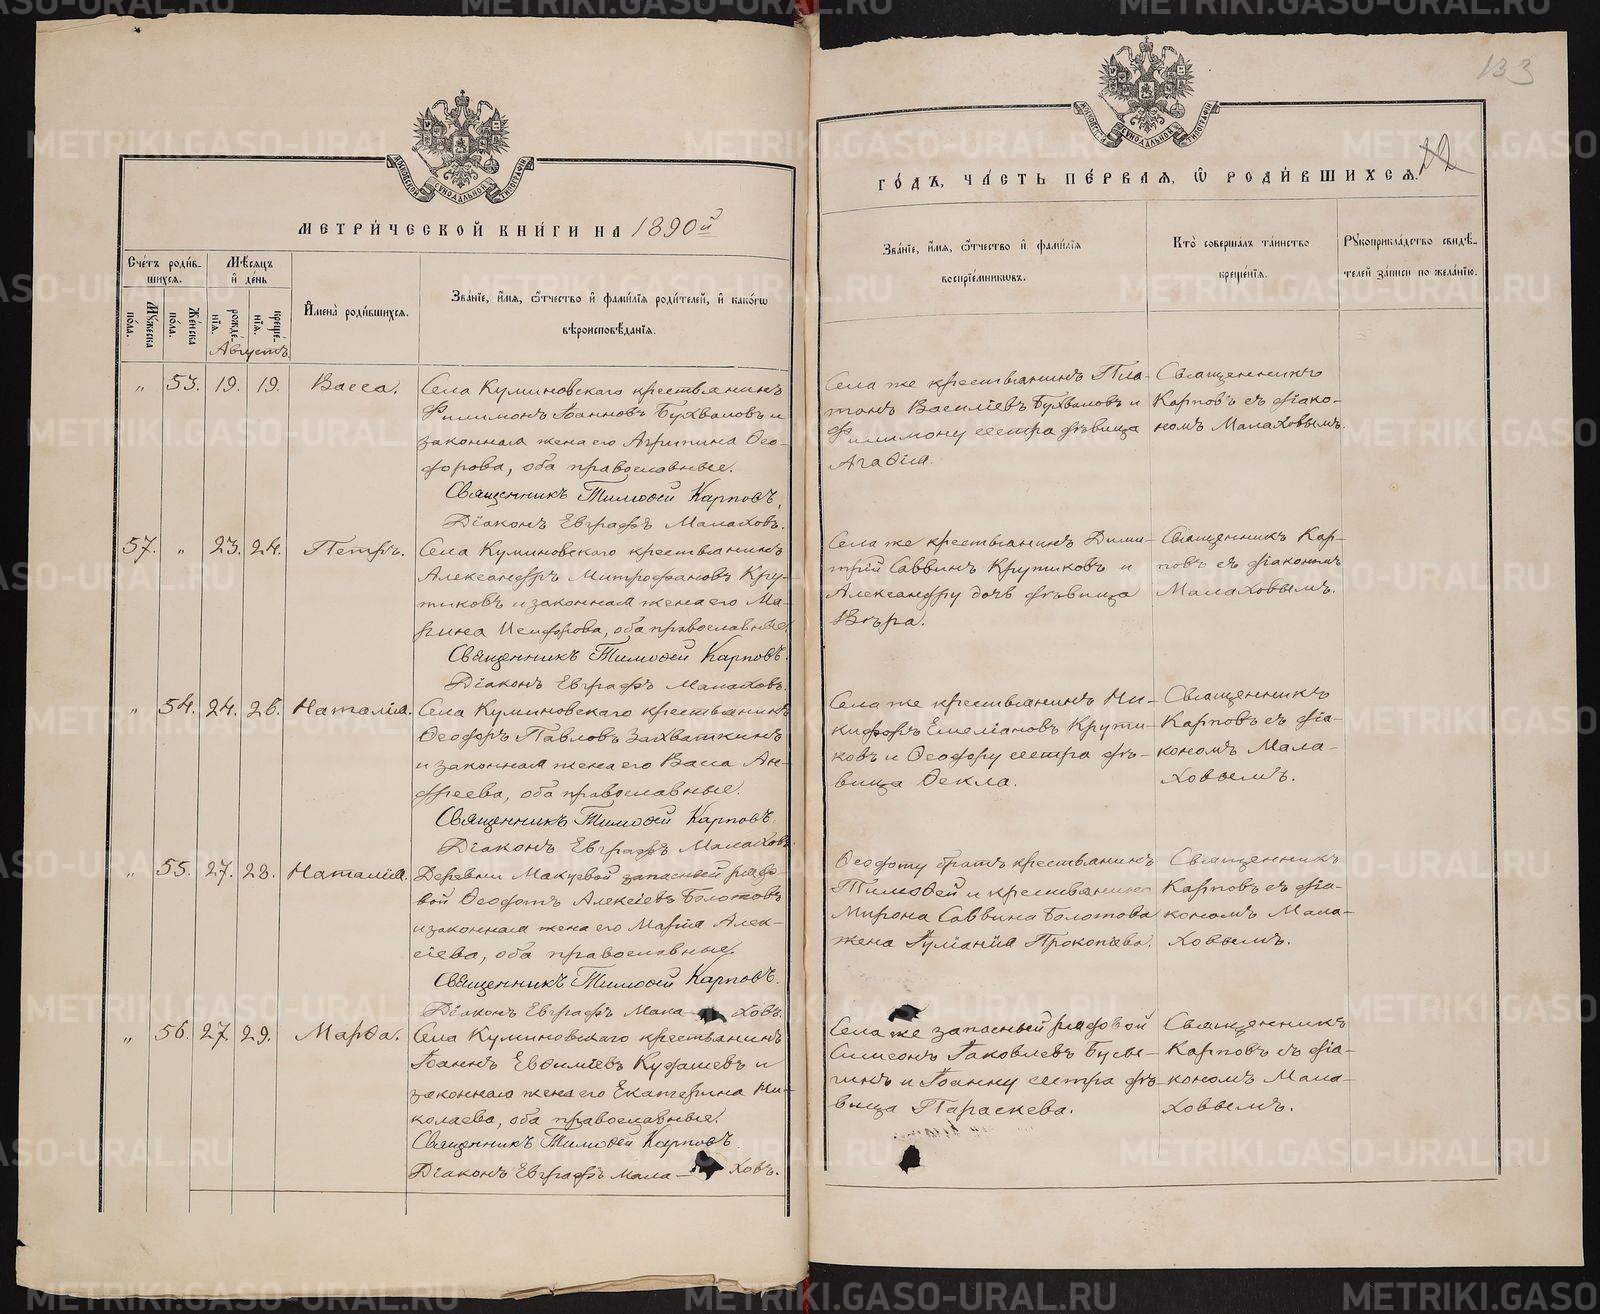 133
МЕТРИ́ЧЕСКОЙ КНИ́ГИ НА 1890й
Сче́тъ роди́в-
шихся.
Мѣ́сяцъ
и҆ де́нь
Му́жеска
по́ла.
Же́нска
по́ла.
рожде́-
нїя.
креще́-
нїя.
Августъ
И҆мена̀ роди́вшихся.
Зва́нїе, и҆́мя, ѻ҆́тчество и҆ фами́лїя роди́телей, и҆ како́гѡ
вѣроисповѣ́данїя.
„ 53. 19. 19. Васса.
Села Куминовскаго крестьянинъ
Филимонъ Іоанновъ Бухваловъ и
законная жена его Агрипина Ѳео-
дорова, оба православные.
Священникъ Тимоѳей Карповъ.
Діаконъ Евграфъ Малаховъ.
57. „ 23. 24. Петръ.
Села Куминовскаго крестьянинъ
Александръ Митрофановъ Кру-
тиковъ и законная жена его Ма-
рина Исидорова, оба православные.
Священникъ Тимоѳей Карповъ.
Діаконъ Евграфъ Малаховъ.
„ 54. 24. 26. Наталія.
Села Куминовскаго крестьянинъ
Ѳеодоръ Павловъ Захваткинъ
и законная жена его Васса Ан-
дреева, оба православные.
Священникъ Тимоѳей Карповъ.
Діаконъ Евграфъ Малаховъ.
„ 55. 27. 28. Наталія.
Деревни Макуевой запасный рядо-
вой Ѳеодотъ Алексіевъ Болотовъ
и законная жена его Марія Алек-
сіева, оба православные.
Священникъ Тимоѳей Карповъ.
Діаконъ Евграфъ Мала- ховъ.
„ 56. 27 29. Марѳа.
Села Куминовскаго крестьянинъ
Іоаннъ Евѳиміевъ Кудашевъ и
законная жена его Екатерина Ни-
колаева, оба православные.
Священникъ Тимоѳей Карповъ
Діаконъ Евграфъ Мала- ховъ.
ГО́ДЪ, ЧА́СТЬ ПЕ́РВАЯ, Ѡ҆ РОДИ́ВШИХСЯ.
22
Зва́нїе, и҆́мя, ѻ҆́тчество и҆ фами́лїя
воспрїе́мниковъ.
Кто̀ соверша́лъ та́инство
креще́нїя.
Рꙋкоприкла́дство свидѣ́-
телей за́писи по жела́нїю.
Села же крестьянинъ Пла-
тонъ Василіевъ Бухваловъ и
Филимону сестра дѣвица
Агаѳія.
Священникъ
Карповъ съ діако-
номъ Малаховымъ.
Села же крестьянинъ Дими-
трій Саввинъ Крутиковъ и
Александру дочь дѣвица
Вѣра.
Священникъ Кар-
повъ съ діакономъ
Малаховымъ.
Села же крестьянинъ Ни-
кифоръ Емеліановъ Крути-
ковъ и Ѳеодору сестра дѣ-
вица Ѳекла.
Священникъ
Карповъ съ діа-
кономъ Мала-
ховымъ.
Ѳеодоту братъ крестьянинъ
Тимоѳей и крестьянина
Мирона Саввина Болотова
жена Іуліанія Прокопіева.
Священникъ
Карповъ съ діа-
кономъ Мала-
ховымъ.
Села же запасный рядовой
Симеонъ Іаковлевъ Бусы-
гинъ и Іоанну сестра дѣ-
вица Параскева.
Священникъ
Карповъ съ діа-
кономъ Мала-
ховымъ.
METRIKI.GASO-URAL.RU